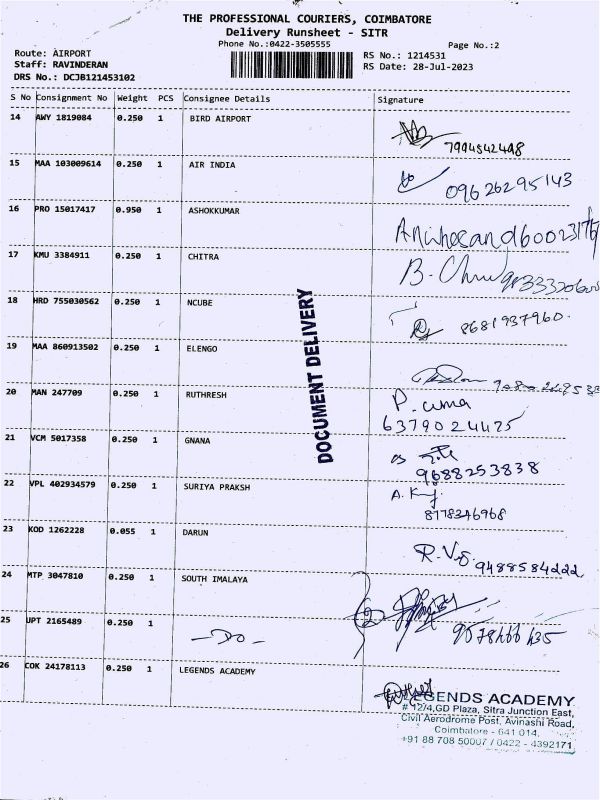 THE PROFESSIONAL COURIERS, COIMBATORE
Delivery Runsheet - SITR
Phone No.:0422-3505555
Page No.:2
Route: AIRPORT
RS No.: 1214531
Staff: RAVINDERAN
RS Date: 28-Jul-2023
DRS No.: DCJB121453102
S No Consignment No Weight PCS Consignee Details Signature
14 AWY 1819084 0.250 1 BIRD AIRPORT
7994542448
15 MAA 103009614 0.250 1 AIR INDIA
09626295143
16 PRO 15017417 0.950 1 ASHOKKUMAR
17 KMU 3384911 0.250 1 CHITRA
18 HRD 755030562 0.250 1 NCUBE
8681937960
19 MAA 860913502 0.250 1 ELENGO
20 MAN 247709 0.250 1 RUTHRESH
P. uma
6379024425
21 VCM 5017358 0.250 1 GNANA
9688253838
22 VPL 402934579 0.250 1 SURIYA PRAKSH
8778346968
23 KOD 1262228 0.055 1 DARUN
9488584222
24 MTP 3047810 0.250 1 SOUTH IMALAYA
25 UPT 2165489 0.250 1 —DO—
26 COK 24178113 0.250 1 LEGENDS ACADEMY
DOCUMENT DELIVERY
LEGENDS ACADEMY
# 12/4,GD Plaza, Sitra Junction East,
Civil Aerodrome Post, Avinashi Road,
Coimbatore - 641 014.
+91 88 708 50007 / 0422 - 4392171